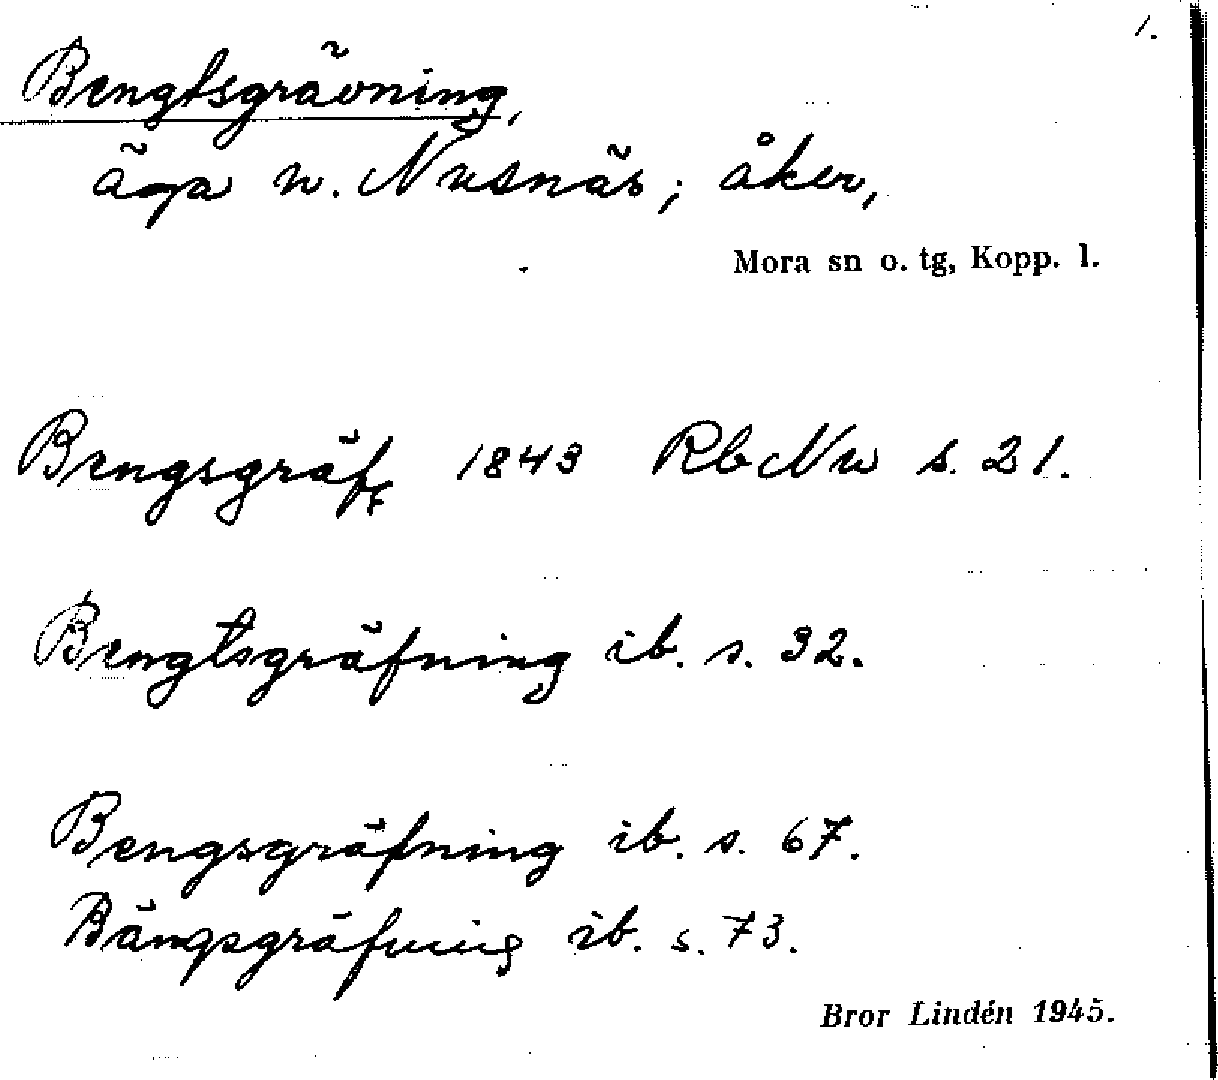 1.
Bengtsgrävning,
äga n. Nusnäs; åker,
Mora sn o. tg, Kopp. l.
Bengsgräf 1843 Rb Nu s. 21.
Bengtsgräfning ib. s. 32.
Bengsgräfning ib. s. 67.
Bängsgräfning ib. s. 73.
Bror Lindén 1945.